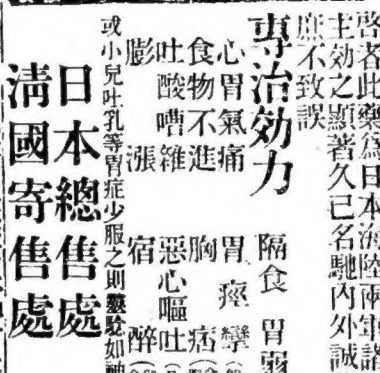 啓者此藥為日本海陸兩軍諸
主効之顯著久已名馳内外誠
庶不致誤
專治効力 隔食 胃弱
心胃氣痛 胃痙攣
食物不進 胸痞
吐酸嘈雜 惡心嘔吐
膨漲 宿醉
或小兒吐乳等胃症少服之則靈騐如神
日本總售處
淸國寄售處